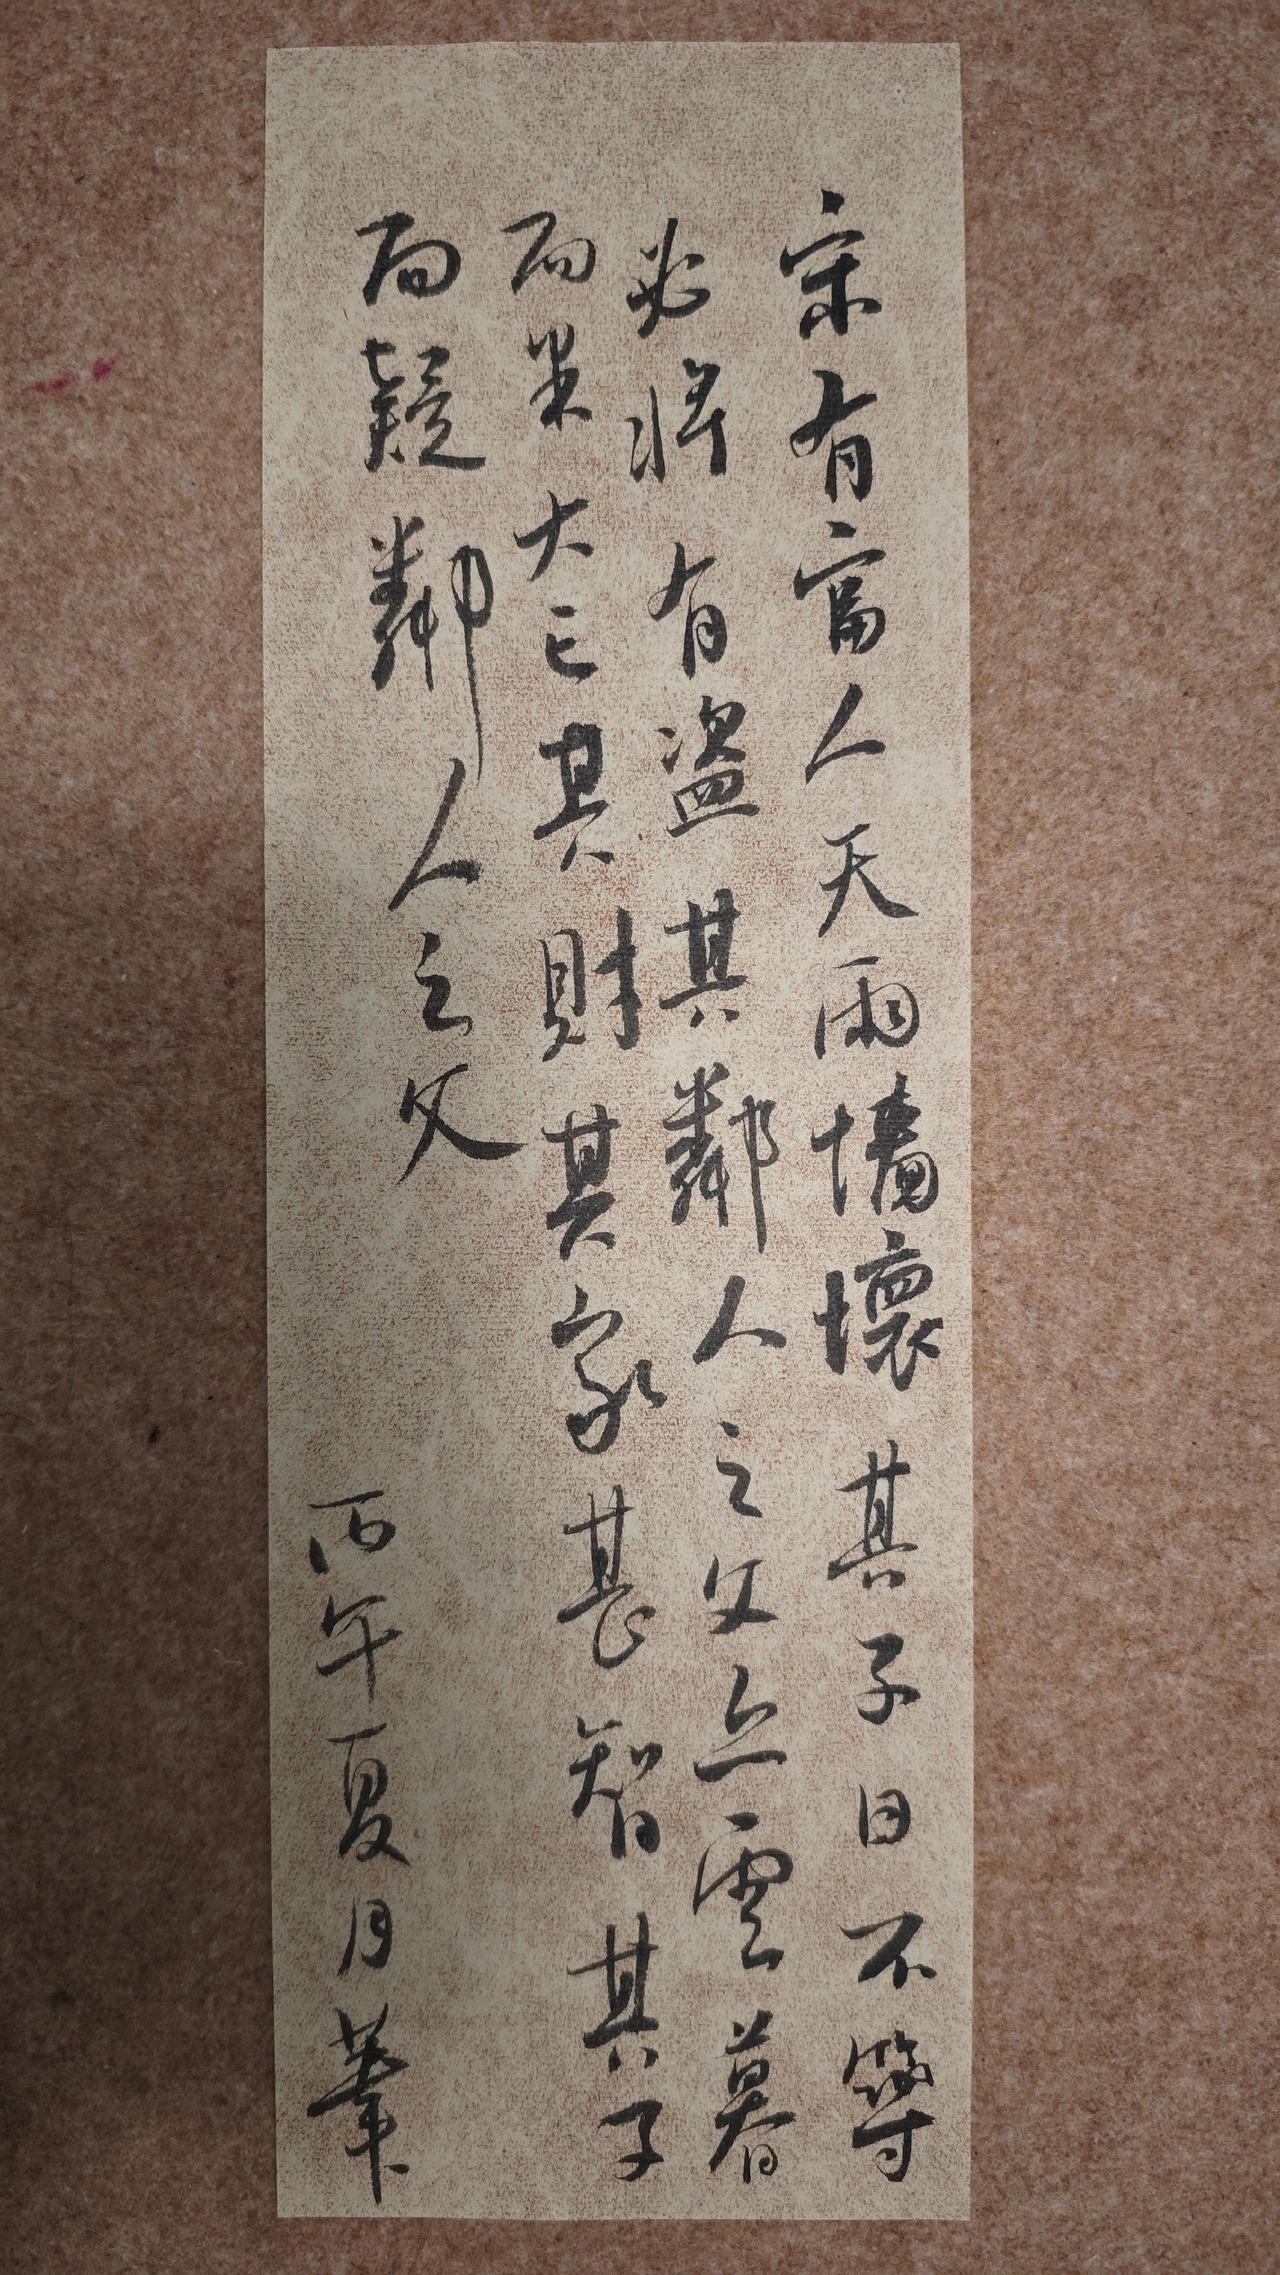 宋有富人天雨墻壞其子曰不築
必將有盜其鄰人之父亦云暮
而果大亡其財其家甚智其子
而疑鄰人之父
丙午夏月筆